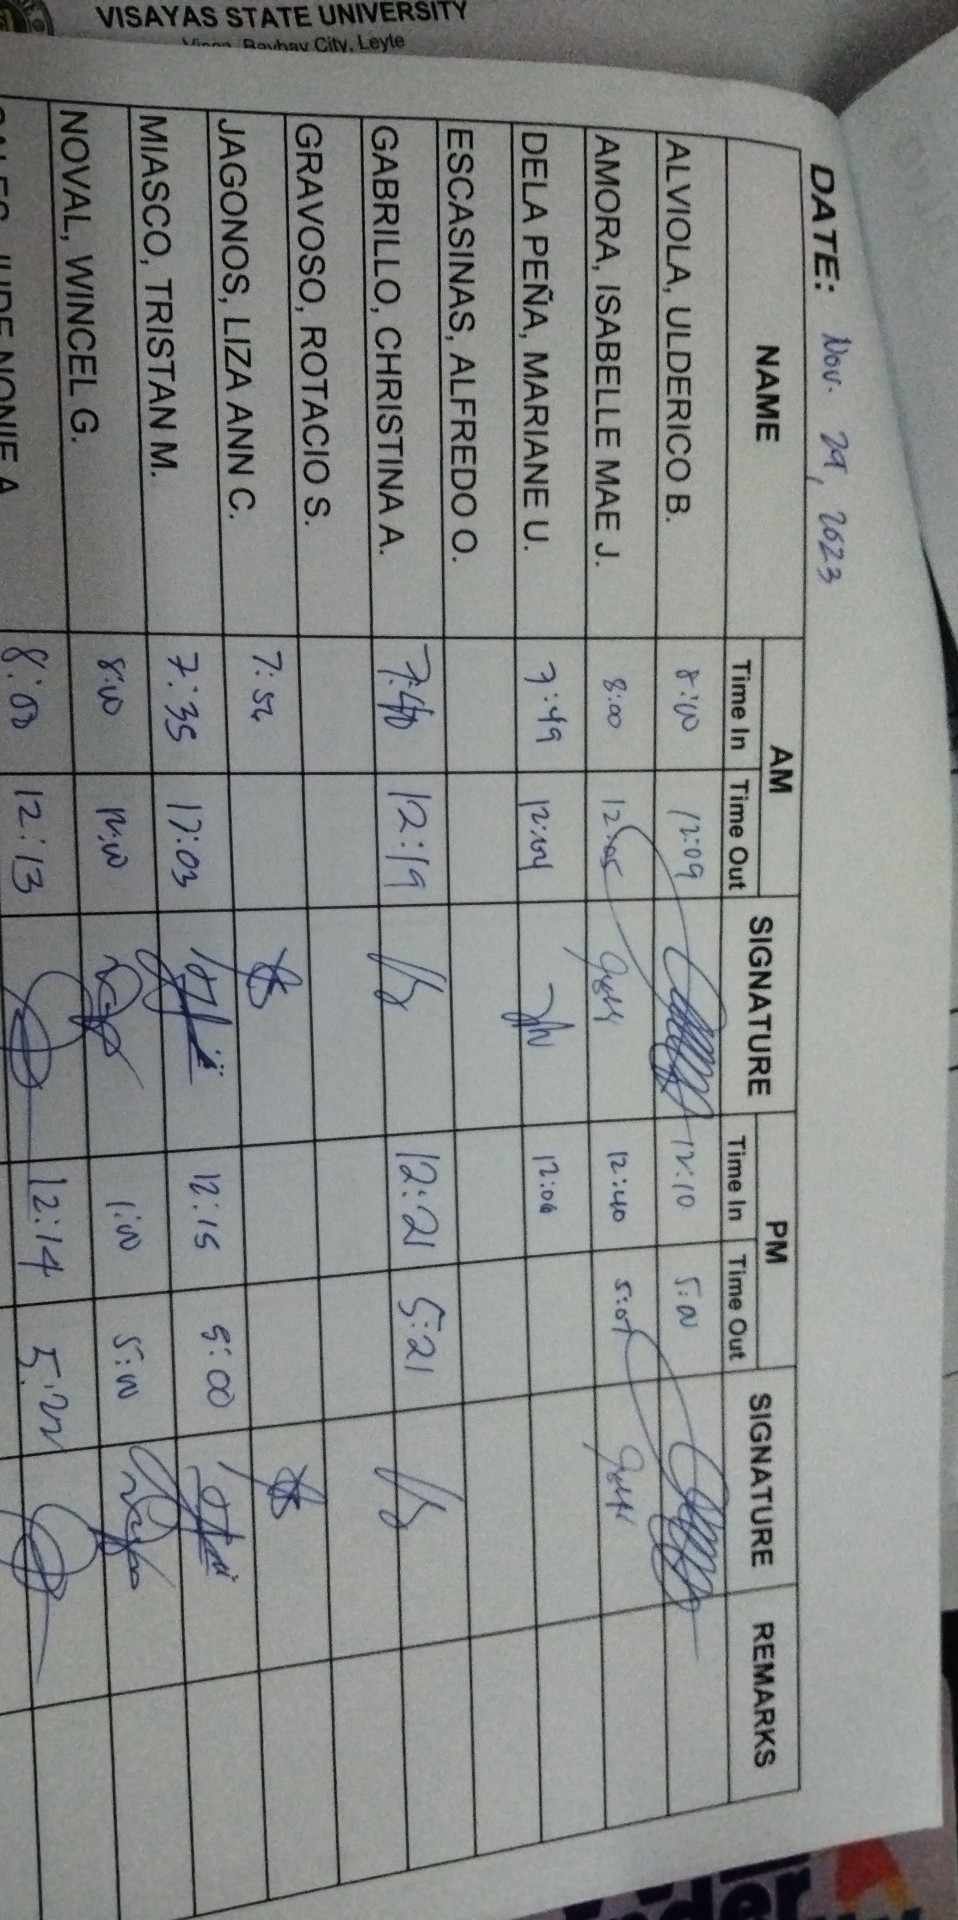 VISAYAS STATE UNIVERSITY
Visca, Baybay City, Leyte
DATE: Nov. 29, 2023
NAME AM SIGNATURE PM SIGNATURE REMARKS
Time In Time Out Time In Time Out
ALVIOLA, ULDERICO B. 8:00 12:09 12:10 5:00
AMORA, ISABELLE MAE J. 8:00 12:05 12:40 5:07
DELA PEÑA, MARIANE U. 7:49 12:04 12:06
ESCASINAS, ALFREDO O.
GABRILLO, CHRISTINA A. 7:40 12:19 12:21 5:21
GRAVOSO, ROTACIO S.
JAGONOS, LIZA ANN C. 7:54
MIASCO, TRISTAN M. 7:35 12:03 12:15 5:00
NOVAL, WINCEL G. 8:00 12:00 1:00 5:00
JUDE NONIE A 8:00 12:13 12:14 5:22